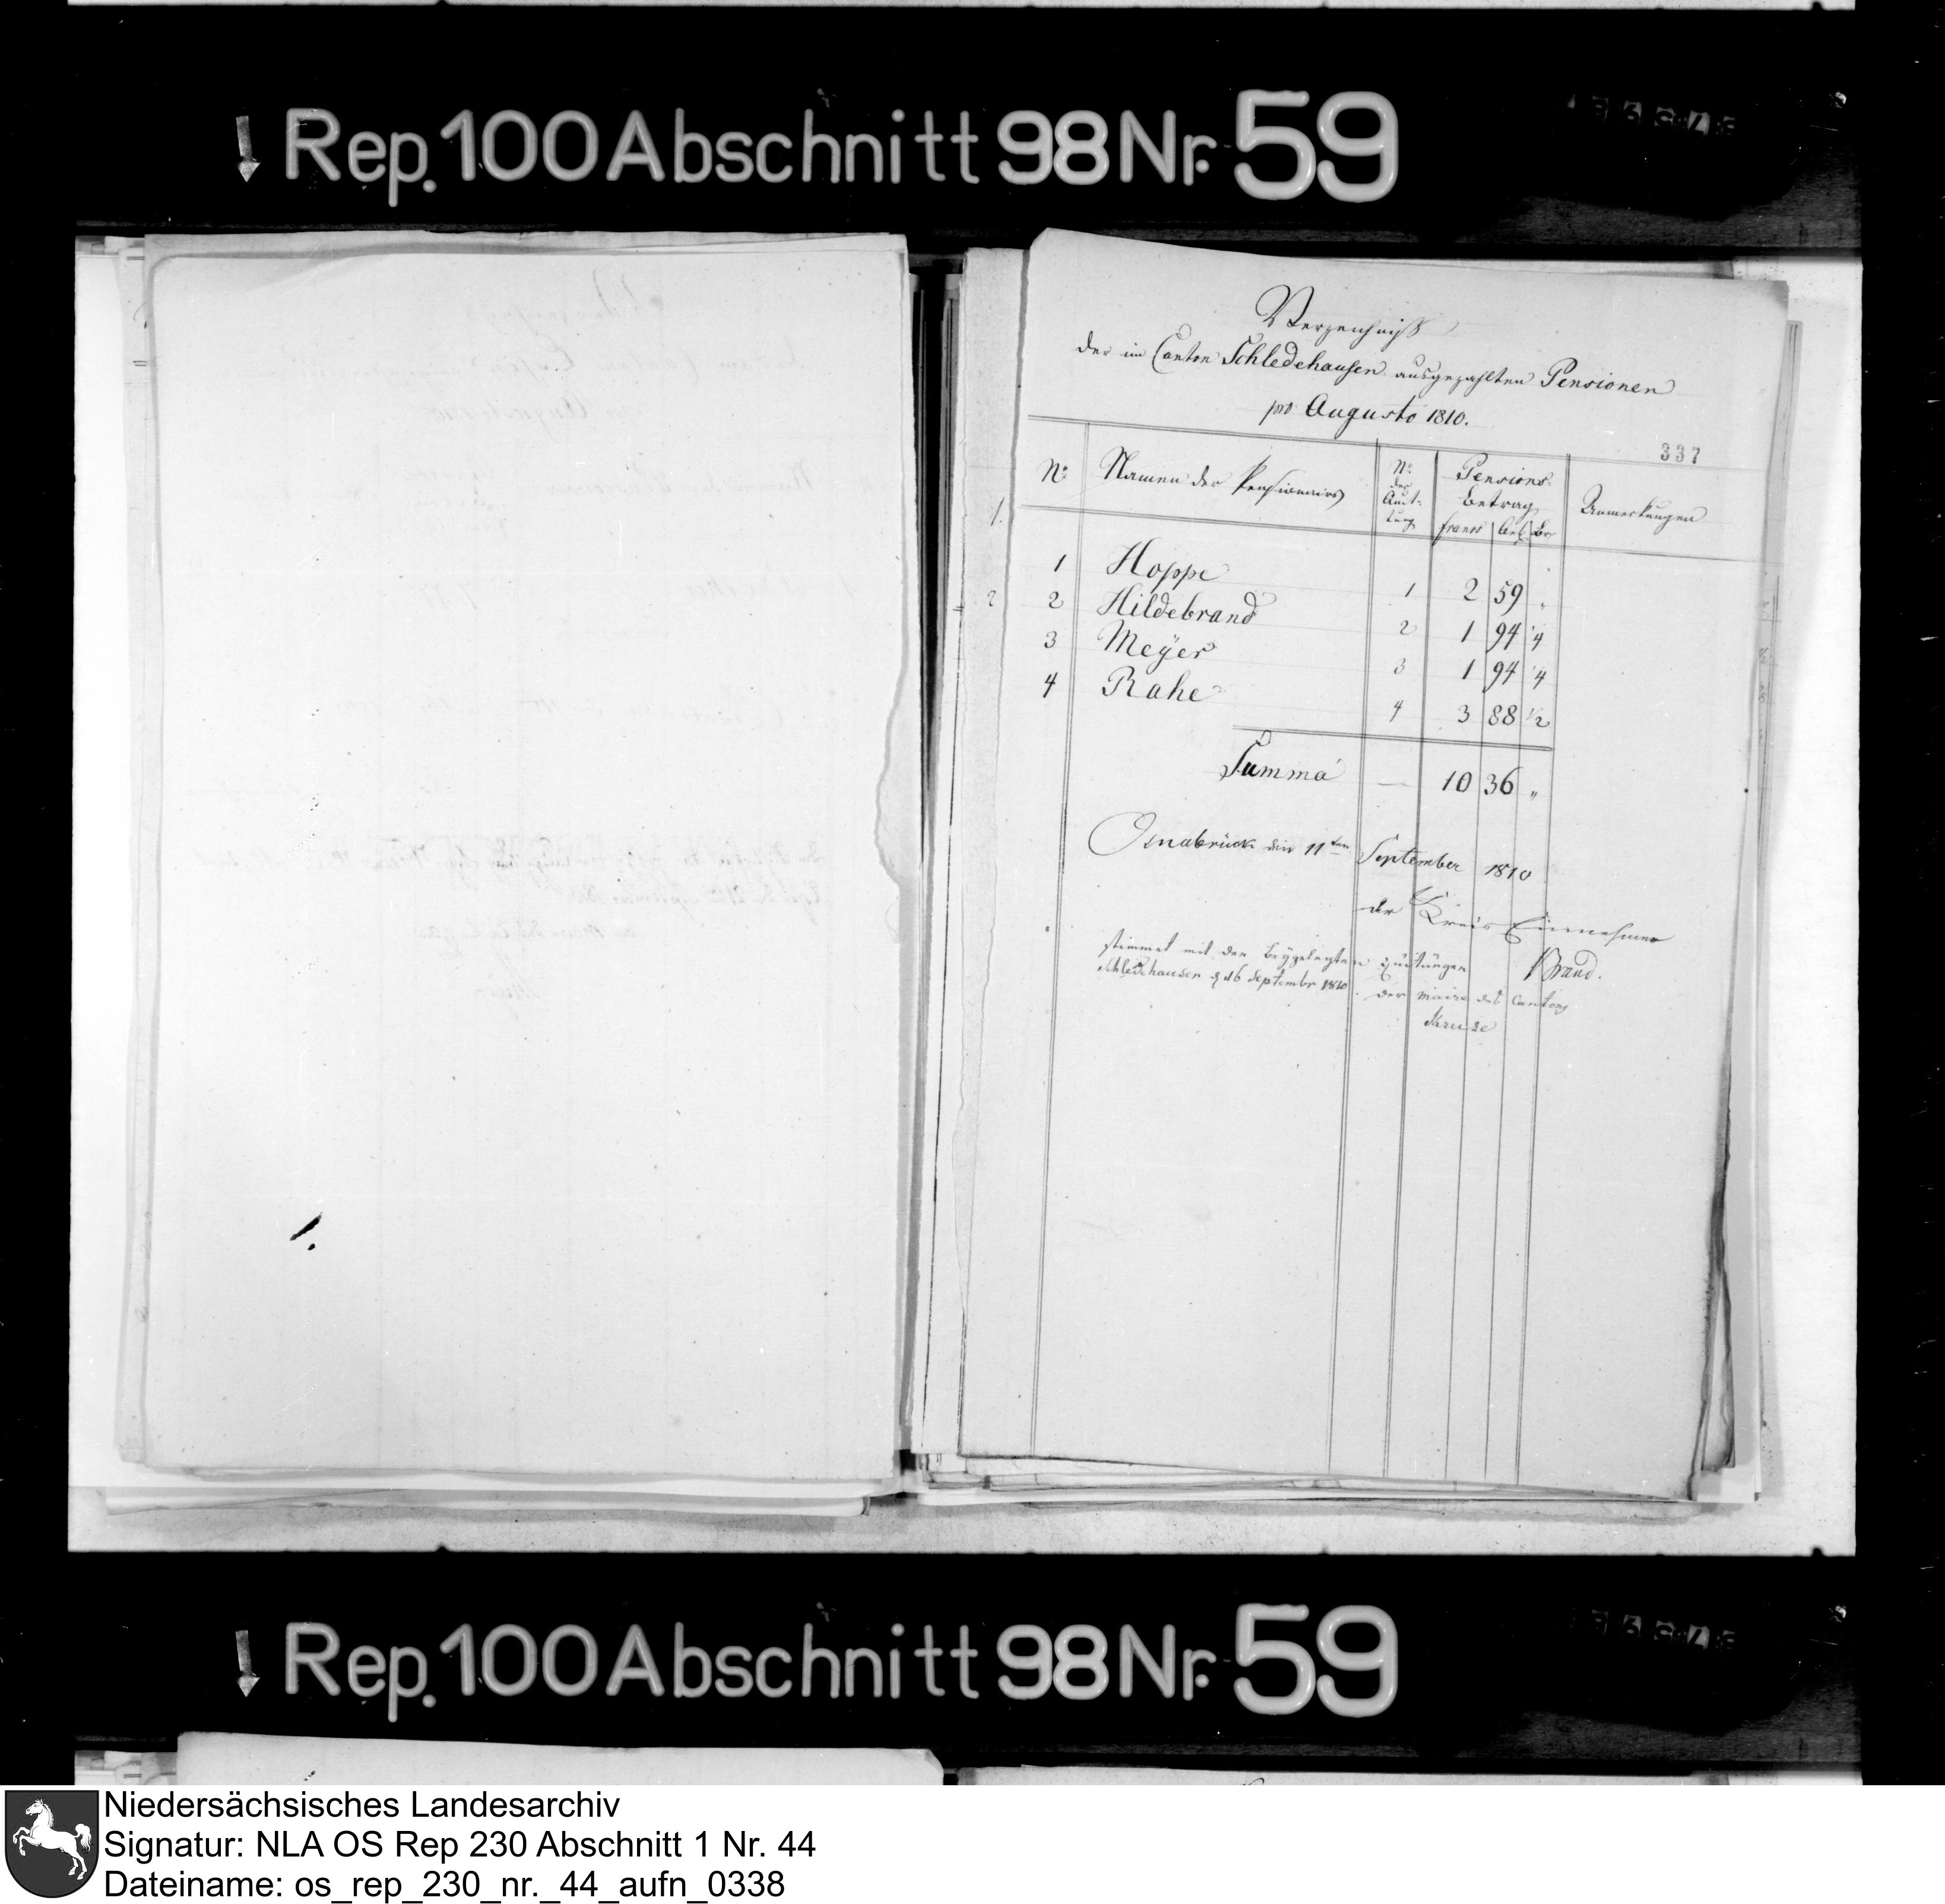 Rep. 100 Abschnitt 98 Nr. 59
Verzeichniß
der im Canton Schledehausen ausgezahlten Pensionen
pro Augusto 1810.
337
No Namen der Pensionairs No der Quit- tung Pensions- betrag Anmerkungen
francs
1 Hoppe 1 2 59 "
2 Hildebrand 2 1 94 1/4
3 Meÿer 3 1 94 1/4
4 Rahe 4 3 88 1/2
Summa — 10 36 "
Osnabrück den 11ten September 1810
der Kreis Einnehmer
Brand.
stimmet mit den beygelegten Quitungen
Schledehausen d 16 Septembr 1810. der Maire des Cantons
Kruse
Rep. 100 Abschnitt 98 Nr. 59
Niedersächsisches Landesarchiv
Signatur: NLA OS Rep 230 Abschnitt 1 Nr. 44
Dateiname: os_rep_230_nr._44_aufn_0338